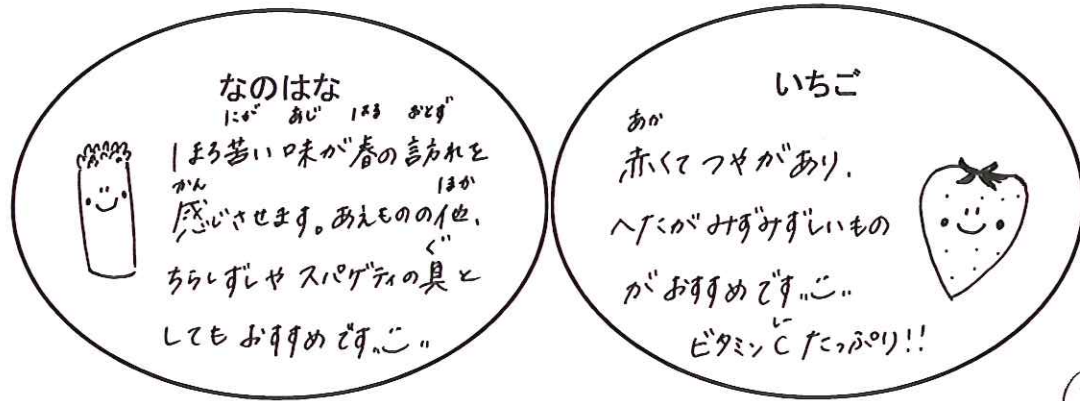 なのはな
にが あじ はる おとず
ほろ苦い味が春の訪れを
かん ほか
感じさせます。あえものの他、
ぐ
ちらしずしやスパゲティの具と
してもおすすめです
いちご
あか
赤くてつやがあり、
へたがみずみずしいもの
がおすすめです
しー
ビタミンCたっぷり!!